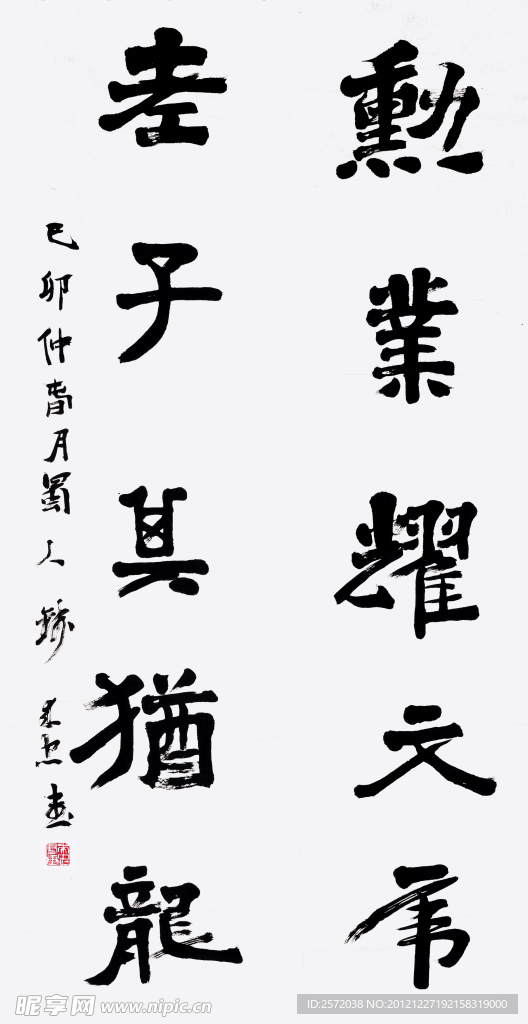 勳業耀文
老子其猶龍
己卯仲春月蜀人
昵享网 www.nipic.cn
ID:2572038 NO:20121227192158319000